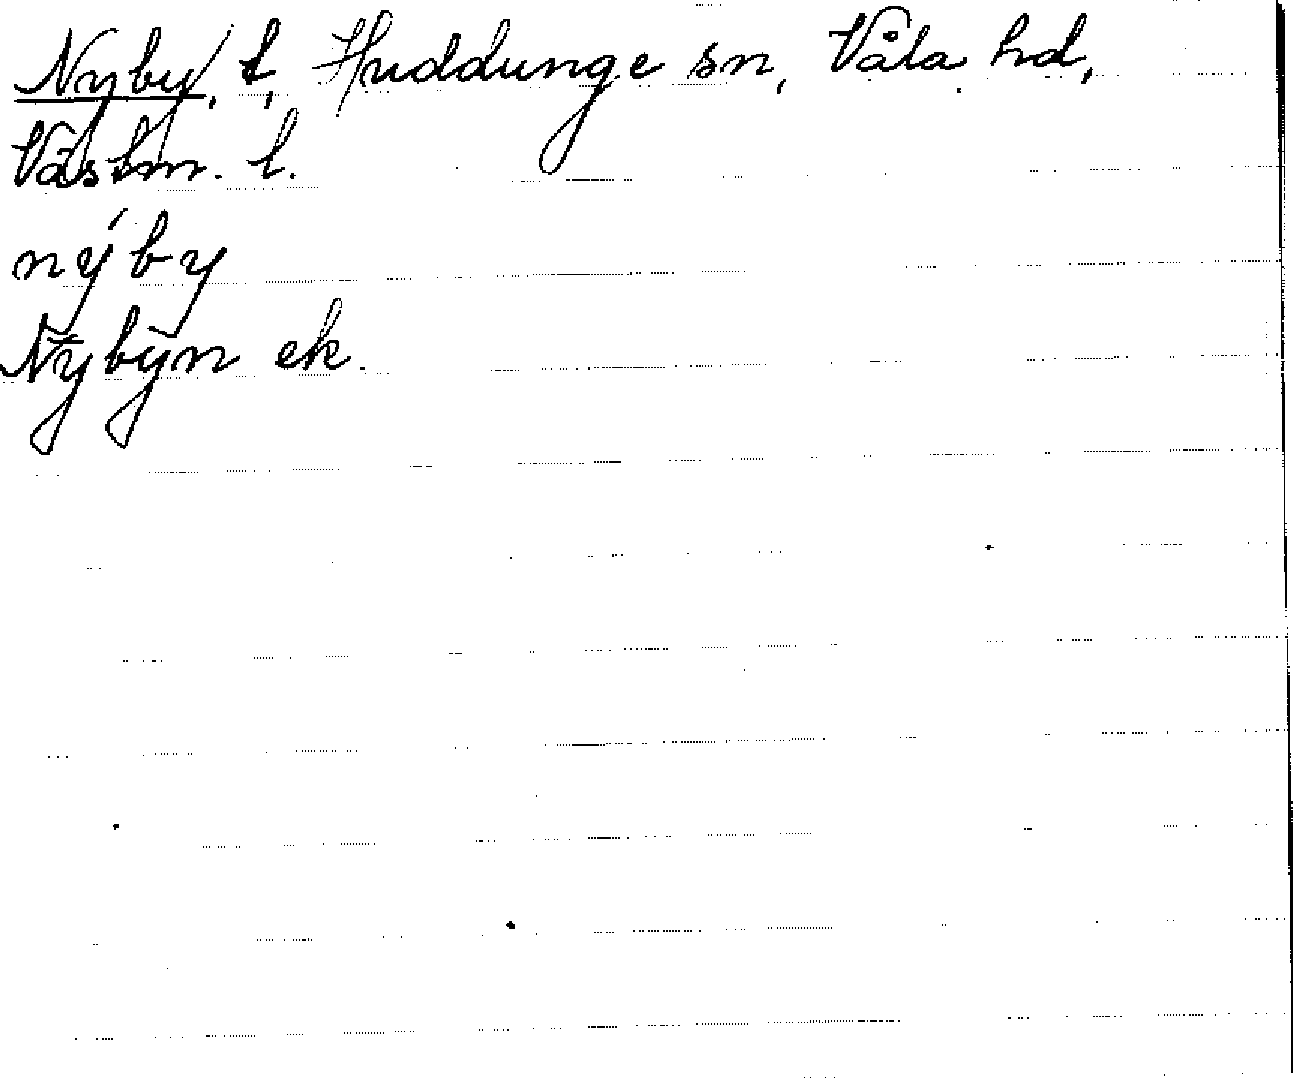 Nyby, t, Huddunge sn, Våla hd,
Västm. l.
nýby
Nybyn ek.